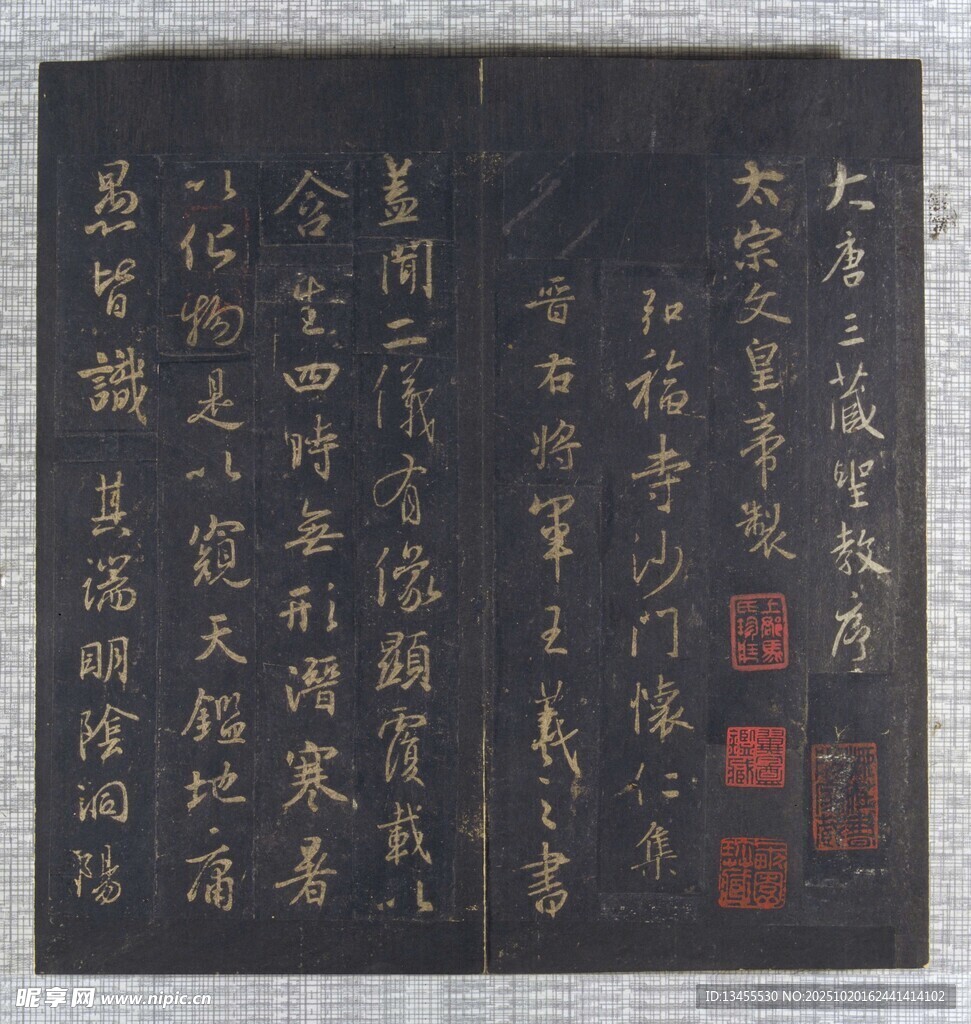 大唐三藏聖教序
太宗文皇帝製
弘福寺沙門懷仁集
晉右將軍王羲之書
蓋聞二儀有像顯覆載以
含生四時無形潛寒暑
以化物是以窺天鑑地庸
愚皆識其端明陰洞陽
昵享网 www.nipic.cn
ID:13455530 NO:20251020162441414102